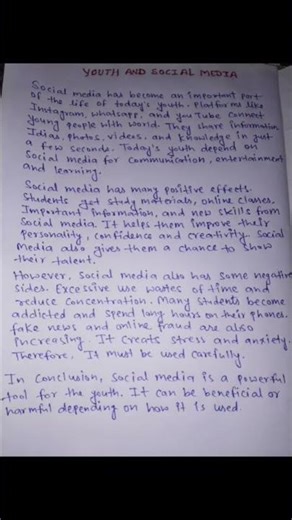 YOUTH AND SOCIAL MEDIA
Social media has become an important part
of the life of today's youth. Platforms like
Instagram, whatsapp, and youTube connect
young people with world. They share information
Idias, photos, videos, and knowledge in just
a few seconds. Today's youth depend on
Social media for communication, entertainment
and learning.
Social media has many positive effects.
Students get study materials, online classes,
Important information, and new skills from
Social media. It helps them improve their
personality, confidence and creativity. Social
Media also gives them a chance to show
their talent.
However, Social media also has some negative
sides. Excessive use wastes of time and
reduce concentration. Many students become
addicted and spend long hours on their phones.
fake news and online fraud are also
increasing. It creats stress and anxiety.
Therefore, It must be used carfully.
In Conclusion, Social media is a powerful
tool for the youth. It can be beneficial or
harmful depending on how it is used.